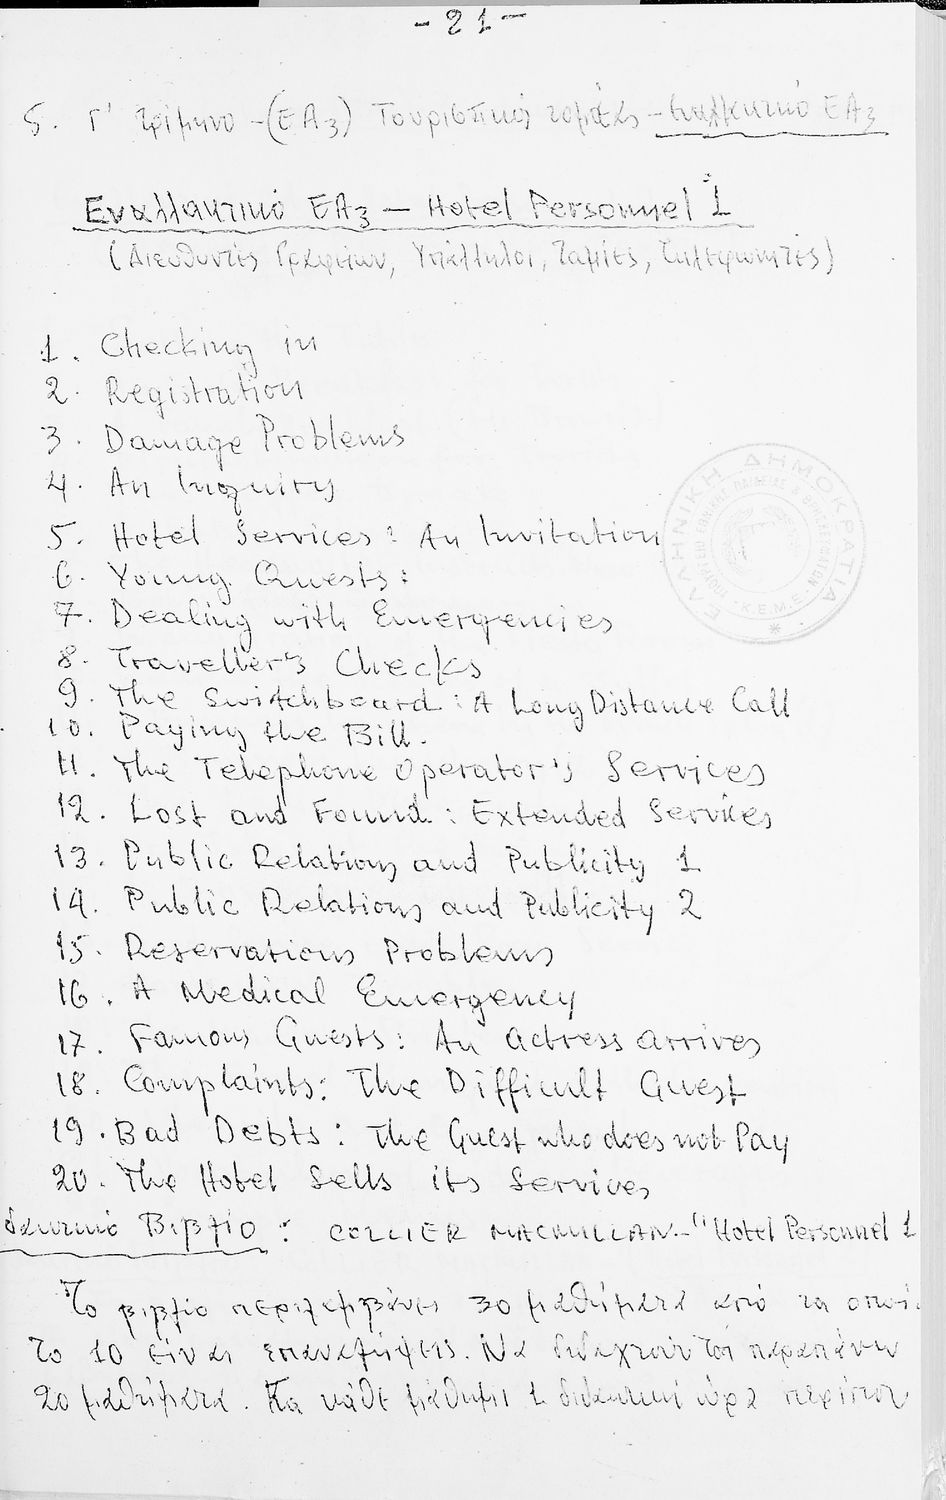 - 21 -
5. Γ' τρίμηνο - (ΕΑ3) Τουριστικός τομέας - Εναλλακτικό ΕΑ3
Εναλλακτικό ΕΑ3 - Hotel Personnel 1
(Διευθυντές Γραφείων, Υπάλληλοι, Ταμίες, Τηλεφωνητές)
1. Checking in
2. Registration
3. Damage Problems
4. An Inquiry
5. Hotel Services: An Invitation
6. Young Guests:
7. Dealing with Emergencies
8. Traveller's Checks
9. The Switchboard: A Long Distance Call
10. Paying the Bill.
11. The Telephone Operator's Services
12. Lost and Found: Extended Services
13. Public Relations and Publicity 1
14. Public Relations and Publicity 2
15. Reservations Problems
16. A Medical Emergency
17. Famous Guests: An actress arrives
18. Complaints: The Difficult Guest
19. Bad Debts: The Guest who does not Pay
20. The Hotel Sells its Services
δακτικό Βιβλίο: COLLIER MACMILLAN - "Hotel Personnel 1
Το βιβλίο περιλαμβάνει 30 μαθήματα από τα οποί
το 10 είναι επαναλήψεις. Να διδαχτούν τα παραπάνω
20 μαθήματα. Για κάθε μάθημα 1 διδακτική ώρα περίπου
ΕΛΛΗΝΙΚΗ ΔΗΜΟΚΡΑΤΙΑ
ΥΠΟΥΡΓΕΙΟ ΕΘΝΙΚΗΣ ΠΑΙΔΕΙΑΣ & ΘΡΗΣΚΕΥΜΑΤΩΝ
Κ.Ε.Μ.Ε.